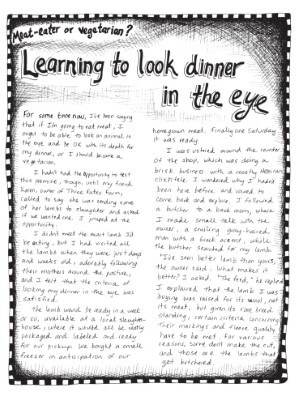 Meat-eater or vegetarian?
Learning to look dinner
in the eye
For some time now, I've been saying
that if I'm going to eat meat, I
ought to be able to look an animal in
the eye and be OK with its death for
my dinner, or I should become a
vegetarian.
I hadn't had the opportunity to test
this premise, though, until my friend
Karin, owner of Three Fates Farm,
called to say she was sending some
of her lambs to slaughter and asked
if we wanted one. I jumped at the
opportunity.
I didn't meet the exact lamb I'd
be eating, but I had visited all
the lambs when they were just days
and weeks old, adorably following
their mothers around the pasture,
and I felt that the criteria of
looking my dinner in the eye was
satisfied.
The lamb would be ready in a week
or so, available at a local slaughter-
house, where it would all be neatly
packaged and labeled and ready
for our pickup. We bought a small
freezer in anticipation of our
homegrown meat. Finally one Saturday
it was ready.
I was ushered around the counter
of the shop, which was doing a
brisk business with a mostly
clientele. I wondered why I hadn't
been here before and vowed to
come back and explore. I followed
a butcher to a back room, where
I made small talk with the
owner, a smiling gray-haired
man with a Greek accent, while
the butcher searched for my lamb.
"I've seen better lamb than yours,"
the owner said. What makes it
better? I asked. "The feed," he replied.
I explained that the lamb I was
buying was raised for its wool, not
its meat, but given its rare breed
standing, certain criteria concerning
their markings and fleece quality
have to be met. For various
reasons, some don't make the cut,
and those are the lambs that
get butchered.